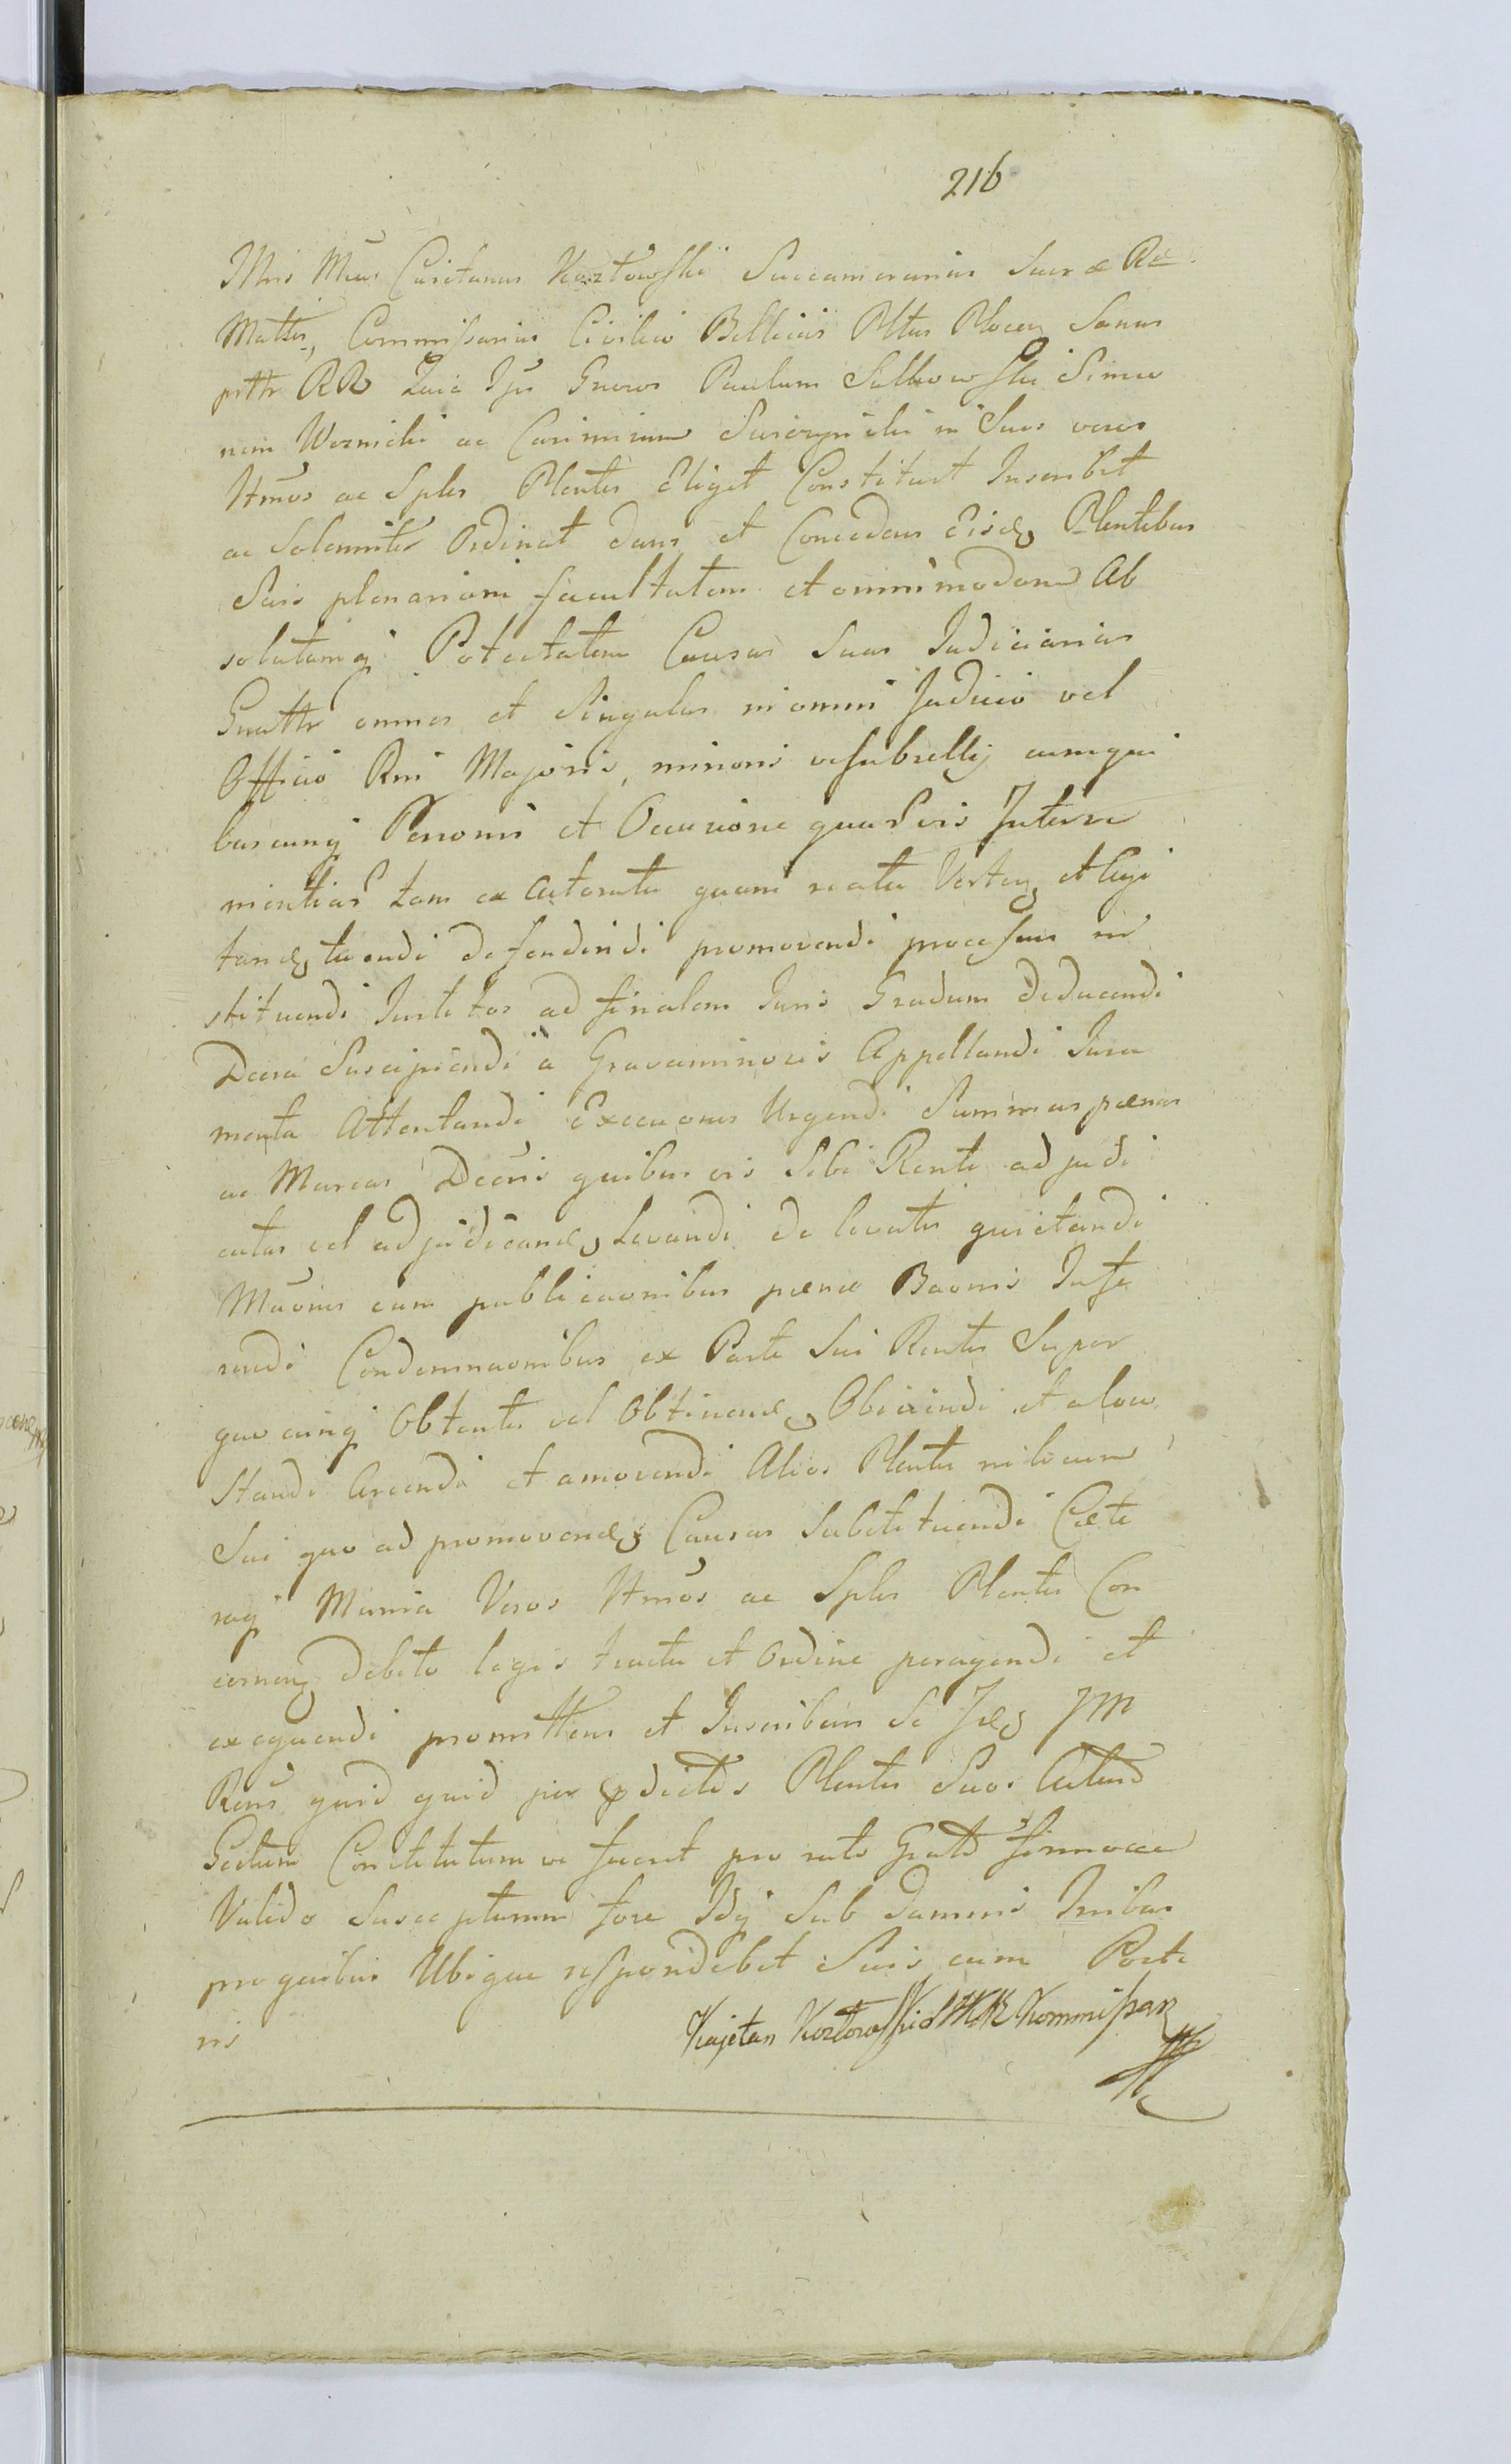 216
Mns Mcus Caietanus Kozłowski Succamerarius Sacræ Ræ
Mattis, Commissarius Civilico Bellicus Pltus Plocen Sanus
prttr RR Quia Ips Gneros Paulum Sulkowski Simeo
nem Woznicki ac Casimirum Swiezynski in Suos veros
Ittmos ac Sples Plentes Eliget Constituit Inscribit
ac Solemniter Ordinat dans et Concedens Eisdę Plentibus
Suis plenariam facultatem et omnimodam Ab
solutamq Potestatem Causas Suas Judiciarias
Gnattr omnes et Singulas in omni Judicio vel
Officio Rni Majoris, minoris ve subsellij cumqui
buscunq Personis et Occasione quasvis Interve
nientias tam ex Actoratu quam reatu Verten et Agi
tandę tuendi defendendi promovendi processus in
stituendi Institos ad finalem Juris Gradum deducendi
Decra Suscipiendi a Gravaminosis Appellandi Jura
menta Attentandi Execuones Urgendi Summas pænas
ac Marcas Decris quibusvis Sibi Renti adjudi
catas vel adjudicandę Levandi de levatis quietandi
Muones cum publicaonibus pænæ Baonis Infe
rendi Condemnaonibus ex Parte Sui Rentis Super
quocunq Obtentis vel Obtinendę Obiciendi et a loco
Standi Arcendi et amovendi Alios Plentes in locum
Sui quo ad promovendę Causas Substituendi Cæte
raq Munia Veros Ittmos ac Sples Plentes Con
cernen debito legis tractu et Ordine peragendi et
exequendi promittens et Inscribens Se Idę JM
Rens quid quid per pdictos Plentes Suos Actum
Gestum Constitutum ve fuerit pro rato Grato firmoque
Valido Suscepturum fore Idq Sub damnis Tribus
pro quibus Ubique respondebit Suis cum Poste
ris
Kajetan Kozłowski SJKM Kommissarz